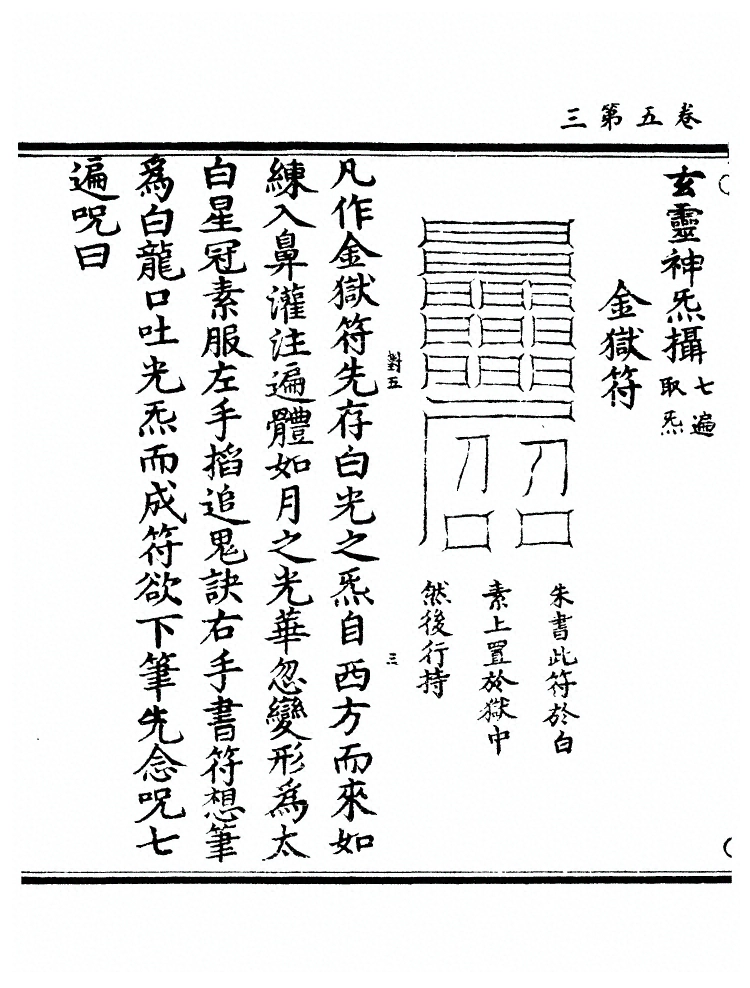 卷五第三
玄靈神炁攝 七遍
取炁
金獄符
朱書此符於白
素上置於獄中
然後行持
對五
三
凡作金獄符先存白光之炁自西方而來如
練入鼻灌注遍體如月之光華忽變形爲太
白星冠素服左手搯追鬼訣右手書符想筆
爲白龍口吐光炁而成符欲下筆先念呪七
遍呪曰